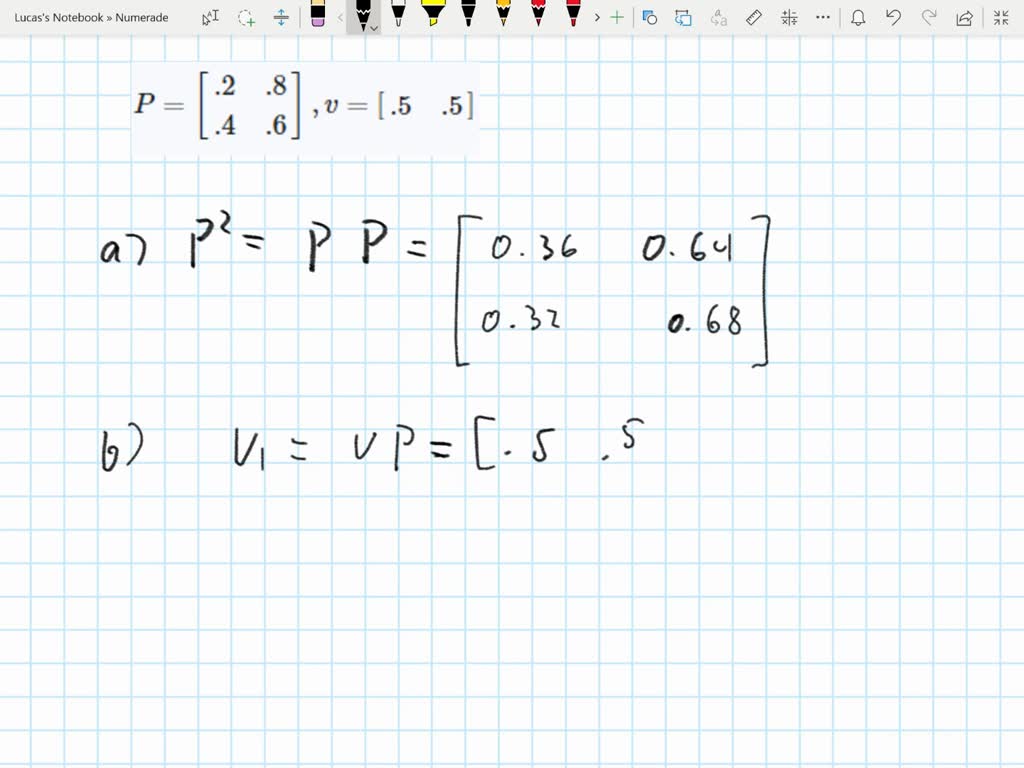 Lucas's Notebook » Numerade
P = [ .2 .8
.4 .6 ] , v = [ .5 .5 ]
a) P² = P P = [ 0.36 0.64
0.32 0.68 ]
b) V₁ = V P = [ .5 .5